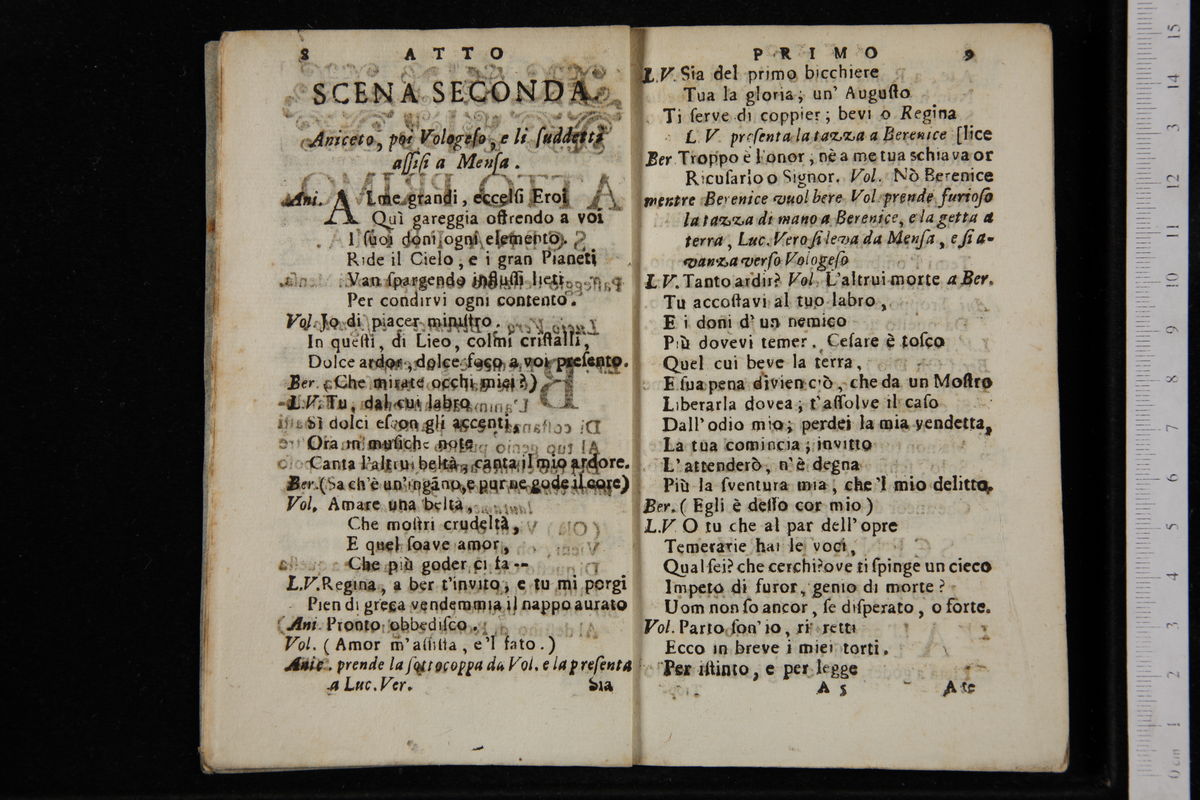 8 ATTO
SCENA SECONDA.
Aniceto, poi Vologeso, e li suddetti
assisi a Mensa.
Ani. ALme grandi, eccelsi Eroi
Quì gareggia offrendo a voi
I suoi doni ogni elemento.
Ride il Cielo, e i gran Pianeti
Van spargendo influssi lieti
Per condirvi ogni contento.
Vol. Io di piacer ministro.
In questi, di Lieo, colmi cristalli,
Dolce ardor, dolce foco a voi presento.
Ber. (Che mirate occhi miei?)
L.V. Tu, dal cui labro
Sì dolci escon gli accenti,
Ora in musiche note
Canta l'altrui beltà, canta il mio ardore.
Ber. (Sa ch'è un'ingãno, e pur ne gode il core)
Vol. Amare una beltà,
Che mostri crudeltà,
E quel soave amor,
Che più goder ci fa --
L.V. Regina, a ber t'invito, e tu mi porgi
Pien di greca vendemmia il nappo aurato
Ani. Pronto obbedisco.
Vol. (Amor m'assista, e'l fato.)
Anic. prende la sottocoppa da Vol. e la presenta
a Luc. Ver.
Sia
PRIMO 9
L.V. Sia del primo bicchiere
Tua la gloria; un' Augusto
Ti serve di coppier; bevi o Regina
L. V. presenta la tazza a Berenice [lice
Ber. Troppo è l'onor, nè a me tua schiava or
Ricusarlo o Signor. Vol. Nò Berenice
mentre Berenice vuol bere Vol. prende furioso
la tazza di mano a Berenice, e la getta a
terra, Luc. Vero si leva da Mensa, e si a-
vanza verso Vologeso
L.V. Tanto ardir? Vol. L'altrui morte a Ber.
Tu accostavi al tuo labro,
E i doni d'un nemico
Più dovevi temer. Cesare è tosco
Quel cui beve la terra,
E sua pena divien ciò, che da un Mostro
Liberarla dovea; t'assolve il caso
Dall'odio mio; perdei la mia vendetta,
La tua comincia; invitto
L'attenderò, n'è degna
Più la sventura mia, che'l mio delitto.
Ber. (Egli è desso cor mio)
L.V. O tu che al par dell'opre
Temerarie hai le voci,
Qual sei? che cerchi? ove ti spinge un cieco
Impeto di furor, genio di morte?
Uom non so ancor, se disperato, o forte.
Vol. Parto son'io, ri retti
Ecco in breve i miei torti.
Per istinto, e per legge
A 5 A te